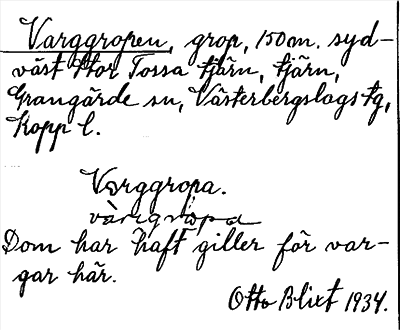 Varggropen, grop, 150 m. syd-
väst Stor Tossa tjärn, tjärn,
Grangärde sn, Västerbergslags tg,
Kopp l.
Varggropa.
Dom har haft giller för var-
gar här.
Otto Blixt 1934.